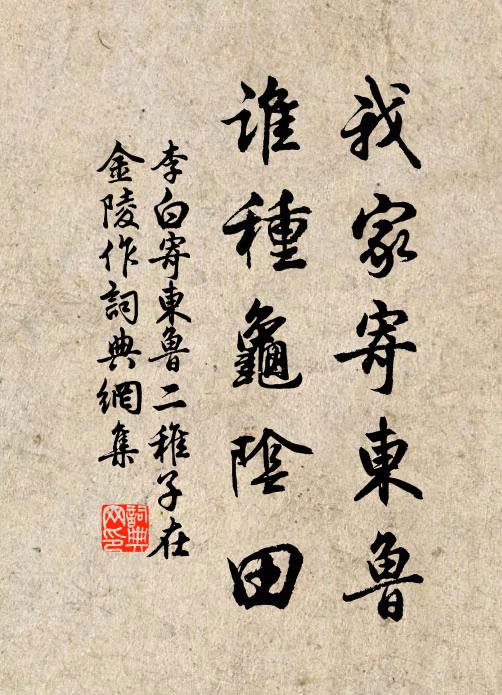 我家寄東魯
誰種龜陰田
李白寄東魯二稚子在
金陵作詞典網集
詞典
网印